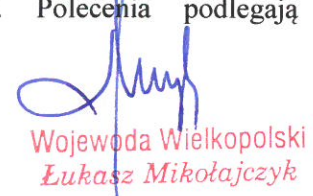 Polecenia podlegają
Wojewoda Wielkopolski
Łukasz Mikołajczyk